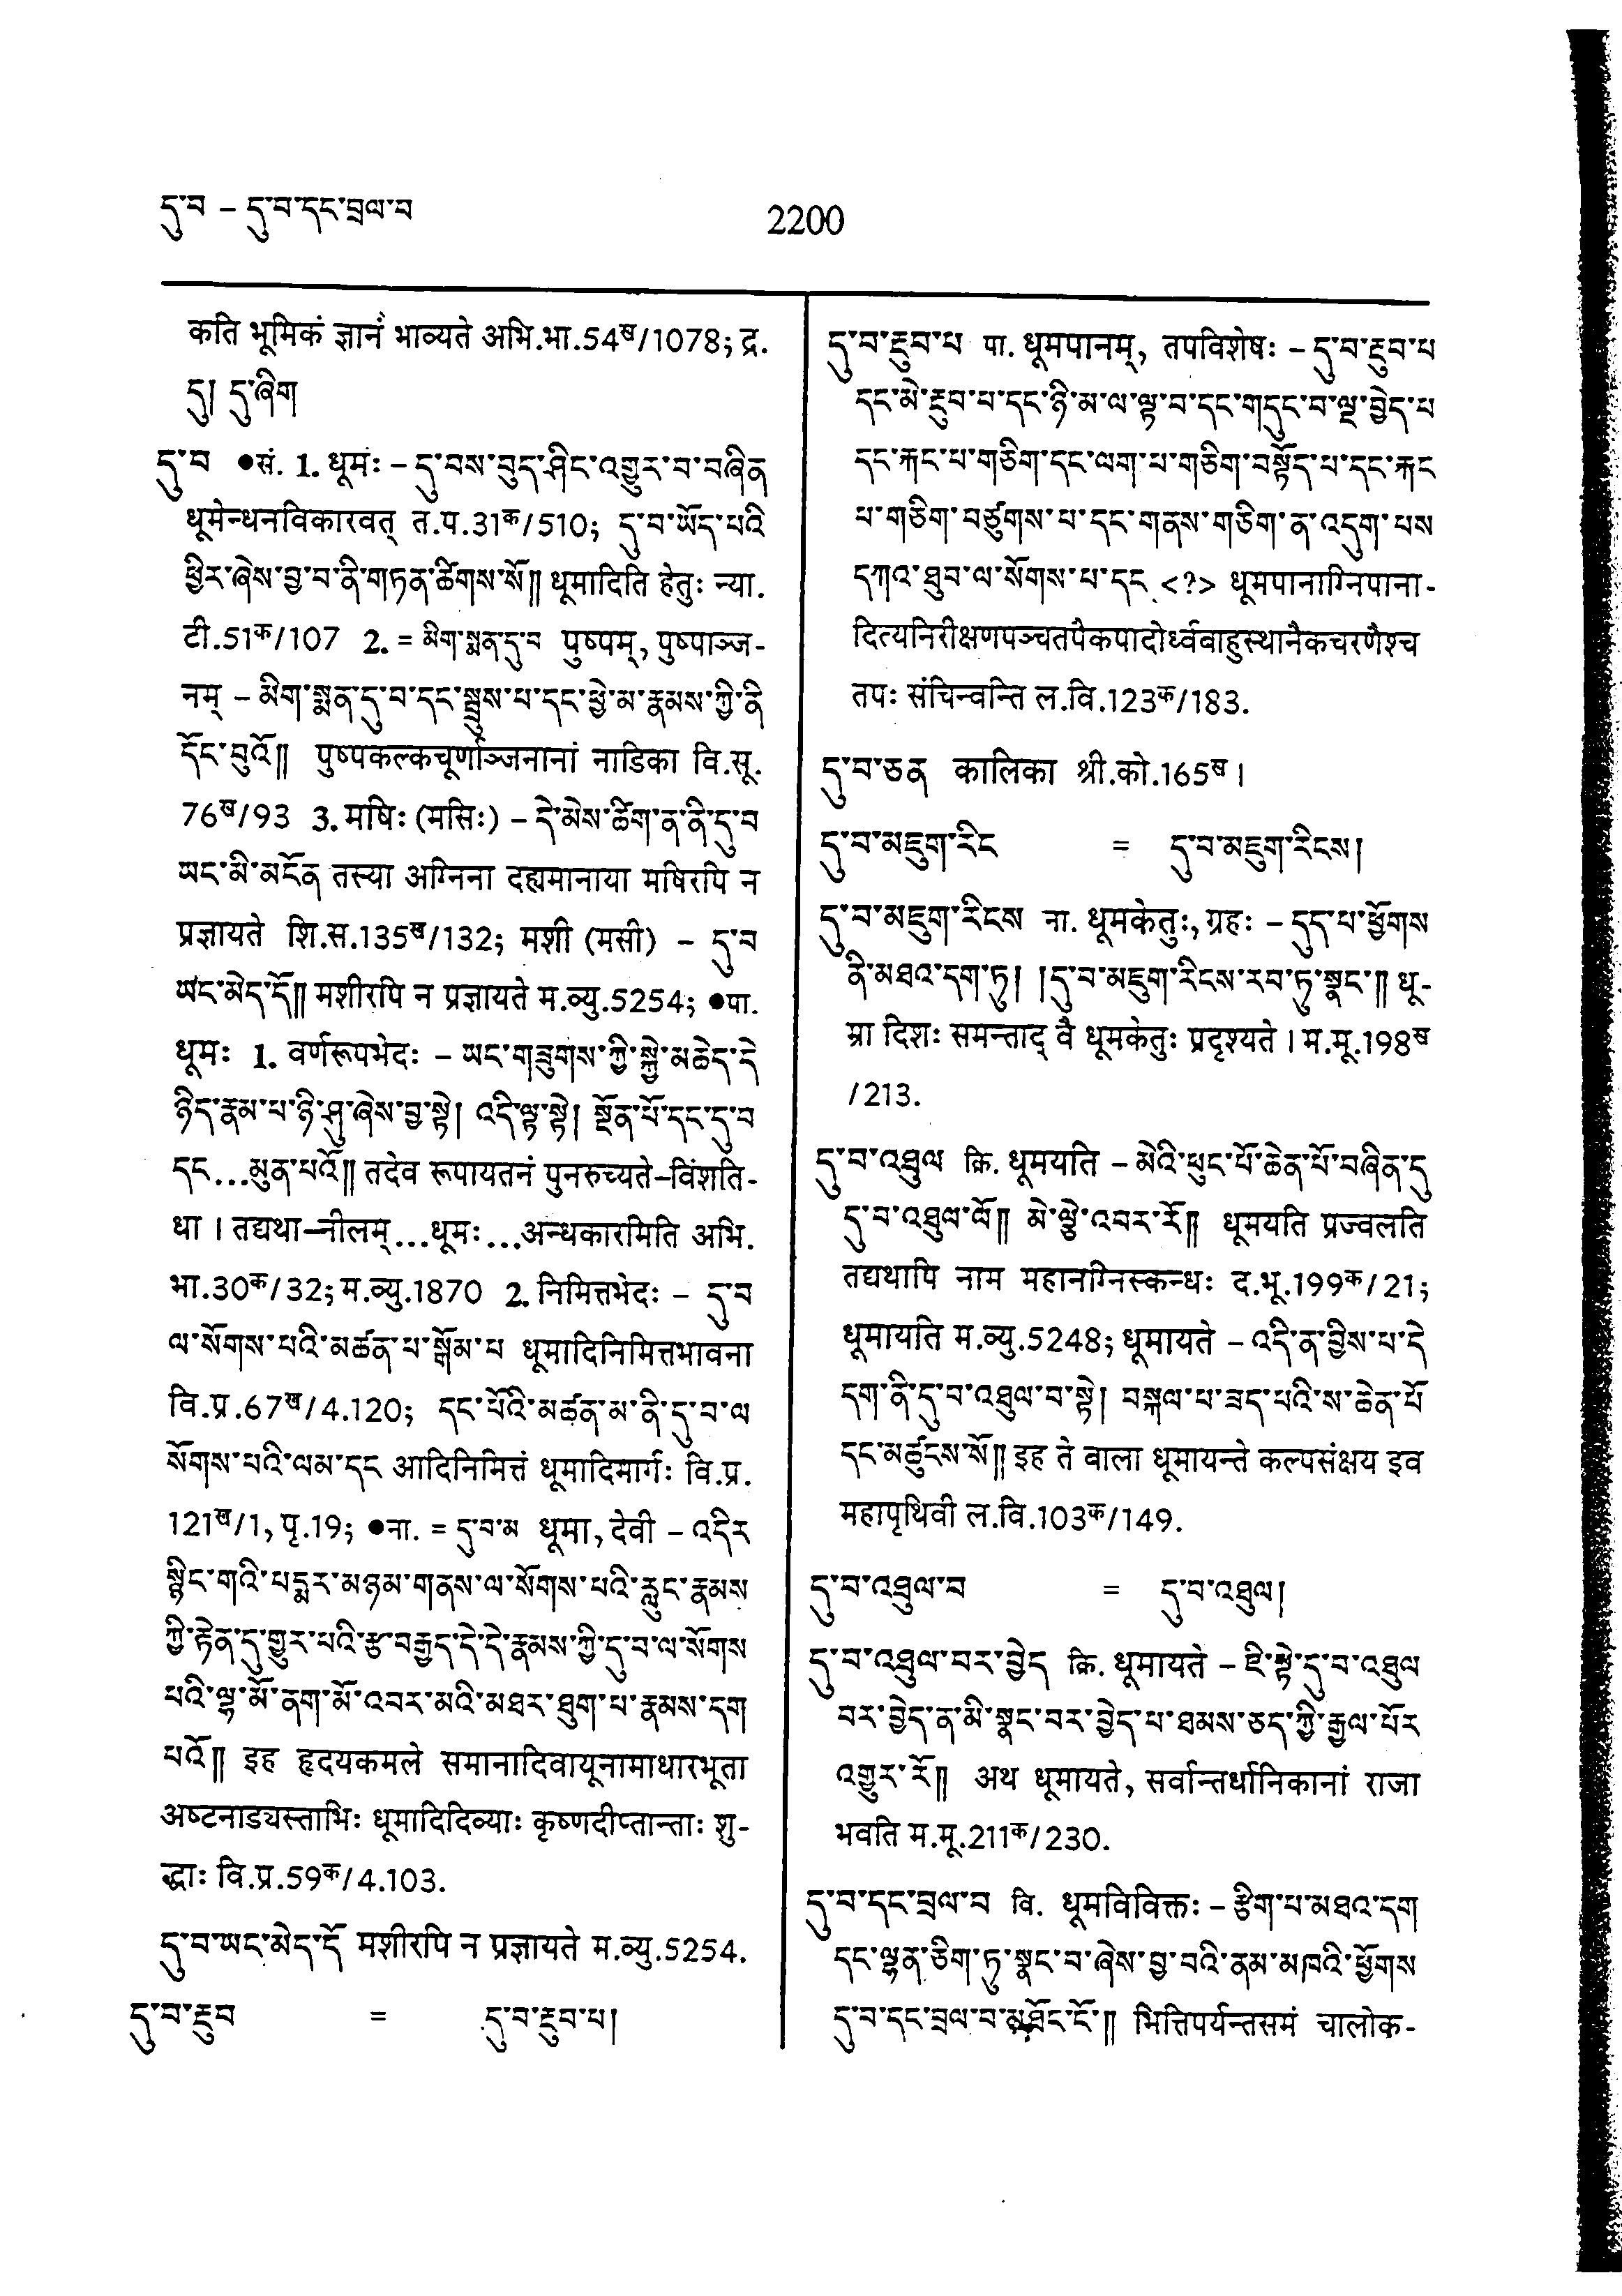 དུ་བ – དུ་བ་དང་བྲལ་བ
2200
कति भूमिकं ज्ञानं भाव्यते अभि.भा.54ख/1078; द्र.
དུ། དུ་ཞིག
དུ་བ ●सं. 1. धूमः – དུ་བས་བུད་ཤིང་འགྱུར་བ་བཞིན
धूमेन्धनविकारवत् त.प.31क/510; དུ་བ་ཡོད་པའི
ཕྱིར་ཞེས་བྱ་བ་ནི་གཏན་ཚིགས་སོ༎ धूमादिति हेतुः न्या.
टी.51क/107 2. = མིག་སྨན་དུ་བ पुष्पम्, पुष्पाञ्ज-
नम् – མིག་སྨན་དུ་བ་དང་སྦྲུས་པ་དང་ཕྱེ་མ་རྣམས་ཀྱི་ནི
དོང་བུའོ༎ पुष्पकल्कचूर्णाञ्जनानां नाडिका वि.सू.
76ख/93 3. मषिः (मसिः) – དེ་མེས་ཚིག་ན་ནི་དུ་བ
ཡང་མི་མངོན तस्या अग्निना दह्यमानाया मषिरपि न
प्रज्ञायते शि.स.135ख/132; मशी (मसी) – དུ་བ
ཡང་མེད་དོ༎ मशीरपि न प्रज्ञायते म.व्यु.5254; ●पा.
धूमः 1. वर्णरूपभेदः – ཡང་གཟུགས་ཀྱི་སྐྱེ་མཆེད་དེ
ཉིད་རྣམ་པ་ཉི་ཤུ་ཞེས་བྱ་སྟེ། འདི་ལྟ་སྟེ། སྔོན་པོ་དང་དུ་བ
དང...མུན་པའོ༎ तदेव रूपायतनं पुनरुच्यते–विंशति-
धा । तद्यथा–नीलम्...धूमः...अन्धकारमिति अभि.
भा.30क/32; म.व्यु.1870 2. निमित्तभेदः – དུ་བ
ལ་སོགས་པའི་མཚན་པ་སྒོམ་པ धूमादिनिमित्तभावना
वि.प्र.67ख/4.120; དང་པོའི་མཚན་མ་ནི་དུ་བ་ལ
སོགས་པའི་ལམ་དང आदिनिमित्तं धूमादिमार्गः वि.प्र.
121ख/1, पृ.19; ●ना. = དུ་བ་མ धूमा, देवी – འདིར
སྙིང་གའི་པདྨར་མཉམ་གནས་ལ་སོགས་པའི་རླུང་རྣམས
ཀྱི་རྟེན་དུ་གྱུར་པའི་རྩ་བརྒྱད་དེ་དེ་རྣམས་ཀྱི་དུ་བ་ལ་སོགས
པའི་ལྷ་མོ་ནག་མོ་འབར་མའི་མཐར་ཐུག་པ་རྣམས་དག
པའོ༎ इह हृदयकमले समानादिवायूनामाधारभूता
अष्टनाड्यस्ताभिः धूमादिदिव्याः कृष्णदीप्तान्ताः शु-
द्धाः वि.प्र.59क/4.103.
དུ་བ་ཡང་མེད་དོ मशीरपि न प्रज्ञायते म.व्यु.5254.
དུ་བ་རྔུབ = དུ་བ་རྔུབ་པ།
དུ་བ་རྔུབ་པ पा. धूमपानम्, तपविशेषः – དུ་བ་རྔུབ་པ
དང་མེ་རྔུབ་པ་དང་ཉི་མ་ལ་ལྟ་བ་དང་གདུང་བ་ལྔ་བྱེད་པ
དང་རྐང་པ་གཅིག་དང་ལག་པ་གཅིག་བསྟོད་པ་དང་རྐང
པ་གཅིག་བཙུགས་པ་དང་གནས་གཅིག་ན་འདུག་པས
དཀའ་ཐུབ་ལ་སོགས་པ་དང <?> धूमपानाग्निपाना-
दित्यनिरीक्षणपञ्चतपैकपादोर्ध्वबाहुस्थानैकचरणैश्च
तपः संचिन्वन्ति ल.वि.123क/183.
དུ་བ་ཅན कालिका श्री.को.165ख।
དུ་བ་མཇུག་རིང = དུ་བ་མཇུག་རིངས།
དུ་བ་མཇུག་རིངས ना. धूमकेतुः, ग्रहः – དུད་པ་ཕྱོགས
ནི་མཐའ་དག་ཏུ། །དུ་བ་མཇུག་རིངས་རབ་ཏུ་སྣང་༎ धू-
म्रा दिशः समन्ताद् वै धूमकेतुः प्रदृश्यते । म.मू.198ख
/213.
དུ་བ་འཐུལ क्रि. धूमयति – མེའི་ཕུང་པོ་ཆེན་པོ་བཞིན་དུ
དུ་བ་འཐུལ་ལོ༎ མེ་ལྕེ་འབར་རོ༎ धूमयति प्रज्वलति
तद्यथापि नाम महानग्निस्कन्धः द.भू.199क/21;
धूमायति म.व्यु.5248; धूमायते – འདི་ན་བྱིས་པ་དེ
དག་ནི་དུ་བ་འཐུལ་བ་སྟེ། བསྐལ་པ་ཟད་པའི་ས་ཆེན་པོ
དང་མཚུངས་སོ༎ इह ते बाला धूमायन्ते कल्पसंक्षय इव
महापृथिवी ल.वि.103क/149.
དུ་བ་འཐུལ་བ = དུ་བ་འཐུལ།
དུ་བ་འཐུལ་བར་བྱེད क्रि. धूमायते – ཇི་སྟེ་དུ་བ་འཐུལ
བར་བྱེད་ན་མི་སྣང་བར་བྱེད་པ་ཐམས་ཅད་ཀྱི་རྒྱལ་པོར
འགྱུར་རོ༎ अथ धूमायते, सर्वान्तर्धानिकानां राजा
भवति म.मू.211क/230.
དུ་བ་དང་བྲལ་བ वि. धूमविविक्तः – རྩིག་པ་མཐའ་དག
དང་ལྷན་ཅིག་ཏུ་སྣང་བ་ཞེས་བྱ་བའི་ནམ་མཁའི་ཕྱོགས
དུ་བ་དང་བྲལ་བ་མཐོང་ངོ་༎ भित्तिपर्यन्तसमं चालोक-